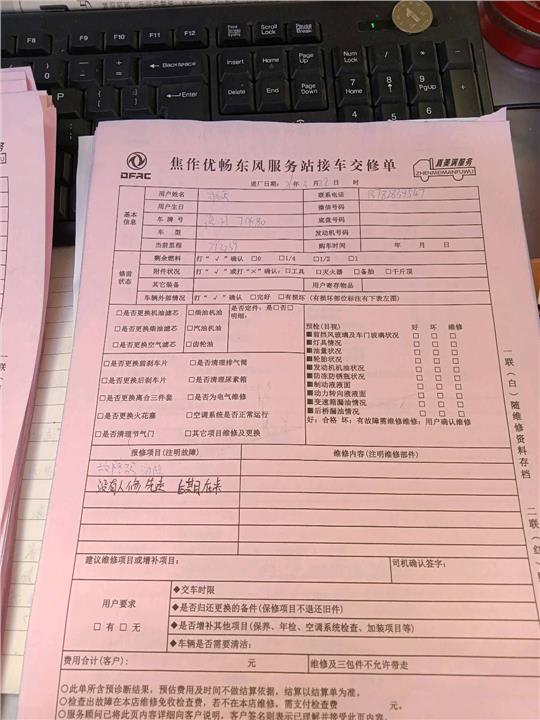 F8
F9
F10
F11
F12
Print Screen SysRq
Scroll Lock
Pause Break
Backspace
Insert
Home
Page Up
Num Lock
P
Enter
Delete
End
Page Down
7 Home
8
9 PgUp
4
5
6
1
2
DFAC
焦作优畅东风服务站接车交修单
真美满服务
ZHENMEIMANFUWU
进厂日期: 年 月 日 时
基本信息
用户姓名
联系电话
用户生日
微信号码
车 牌 号
底盘号码
车 型
发动机号码
当前里程
购车时间 年 月 日
修前状态
剩余燃料 打“√”确认 □0 □1/4 □1/2 □1
附件状况 打“√”或打“×”确认:□工具 □灭火器 □备胎 □千斤顶
其它装备
用户寄存物品
车辆外部情况 打“√”确认 □完好 □有损坏(有损坏部位标注有下表左图)
□是否更换机油滤芯 □柴油机油
□是否更换柴油滤芯 □汽油机油
□是否更换空气滤芯 □齿轮油
是否定件: 是□否□
明细:
□是否更换前刹车片 □是否清理排气筒
□是否更换后刹车片 □是否清理尿素箱
□是否更换离合三件套 □是否为电气维修
□是否更换火花塞 □空调系统是否正常运行
□是否清理节气门 □其它项目维修及更换
预检(目视) 好 坏 维修
■前挡风玻璃及车门玻璃状况 □ □ □
■灯具情况 □ □ □
■油量状况 □ □ □
■轮胎状况 □ □ □
■发动机机油状况 □ □ □
■防冻防锈瓶状况 □ □ □
■制动液液面 □ □ □
■动力转向液液面 □ □ □
■变速箱漏油情况 □ □ □
■后桥漏油情况 □ □ □
好: 合格 坏: 有故障需维修维修: 用户确认维修
报修项目(注明故障)
维修内容(注明维修部件)
故障码
没有人修 先走
建议维修项目或增补项目:
司机确认签字:
用户要求
□有 □无
◆交车时限
◆是否归还更换的备件(保修项目不退还旧件)
◆是否增补其他项目(保养、年检、空调系统检查、加装项目等)
◆车辆是否需要清洁:
费用合计(客户): 元
维修及三包件不允许带走
○此单所含预诊断结果,预估费用及时间不做结算依据,结算以结算单为准。
○检查出故障在本店维修免收检查费,若不在本店维修,需支付检查费 元。
○服务顾问已将此页内容详细向客户说明,客户签名则表示已理解并接受此页内容。
一联(白)随维修资料存档
二联(红)